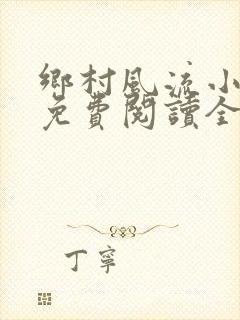 鄉村風流小
免費閱讀全
丁寧